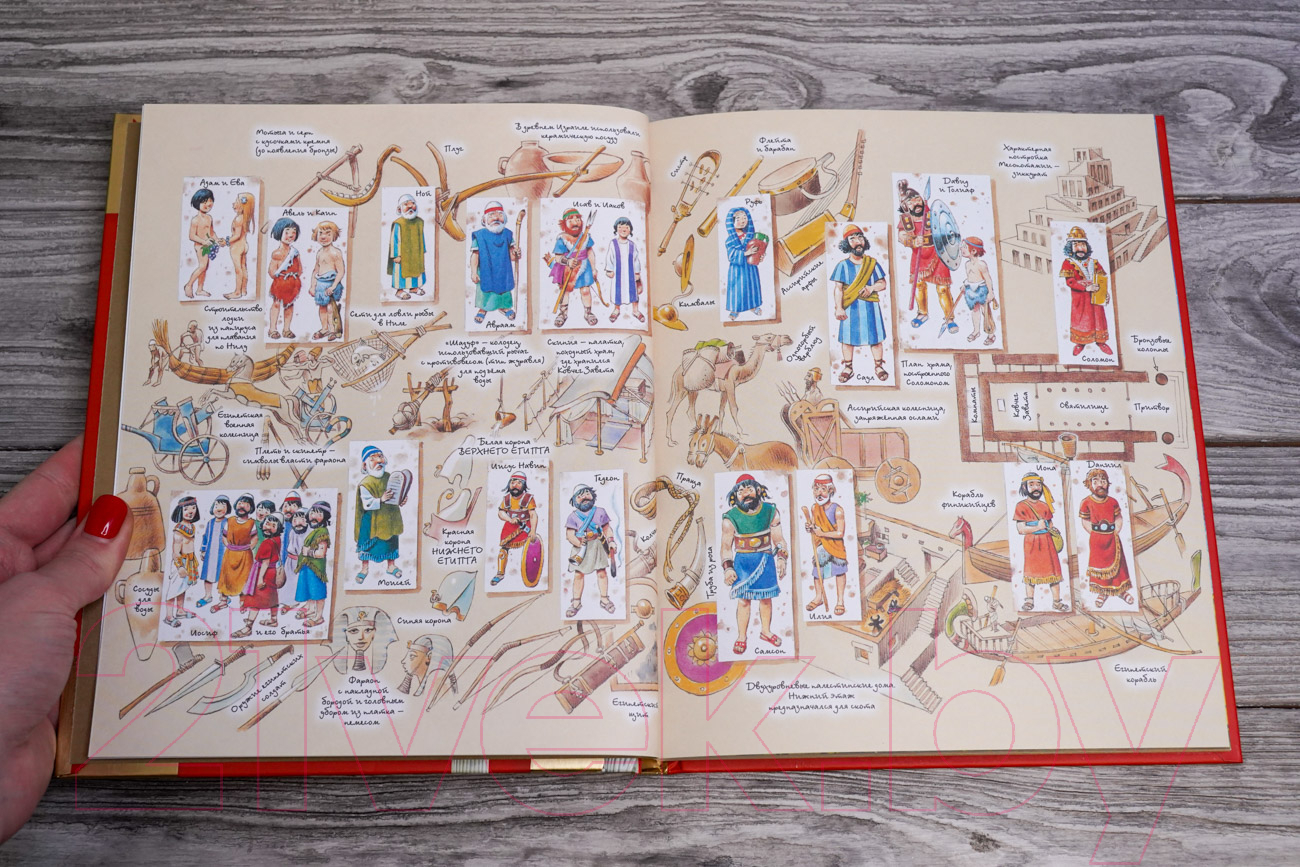 Мотыга и серп
с кусочками кремня
(до появления бронзы)
Плуг
В древнем Израиле использовали
керамическую посуду
Адам и Ева
Авель и Каин
Ной
Авраам
Исав и Иаков
Строительство
лодки
из папируса
для плавания
по Нилу
Сети для ловли рыбы
в Ниле
«Шадуф» – колодец,
использовавший рычаг
с противовесом (тип журавля)
для подъёма
воды
Скиния – палатка,
походный храм,
где хранился
Ковчег Завета
Египетская
военная
колесница
Плеть и скипетр –
символы власти фараона
Белая корона
ВЕРХНЕГО ЕГИПТА
Иисус Навин
Гедеон
Красная
корона
НИЖНЕГО
ЕГИПТА
Моисей
Сосуды
для
воды
Иосиф и его братья
Синяя корона
Оружие египетских
солдат
Фараон
с накладной
бородой и головным
убором из платка –
немесом
Египетский
щит
Систр
Флейта
и барабан
Характерная
постройка
Месопотамии –
зиккурат
Руфь
Давид
и Голиаф
Кимвалы
Ассирийские
арфы
Одногорбый
верблюд
Саул
Соломон
Бронзовые
колонны
План храма,
построенного
Соломоном
Комнаты
Ковчег
Завета
Святилище
Притвор
Ассирийская колесница,
запряжённая ослами
Праща
Труба из рога
Самсон
Илия
Корабль
финикийцев
Иона
Даниил
Двухуровневые палестинские дома.
Нижний этаж
предназначался для скота
Египетский
корабль
21vek.by